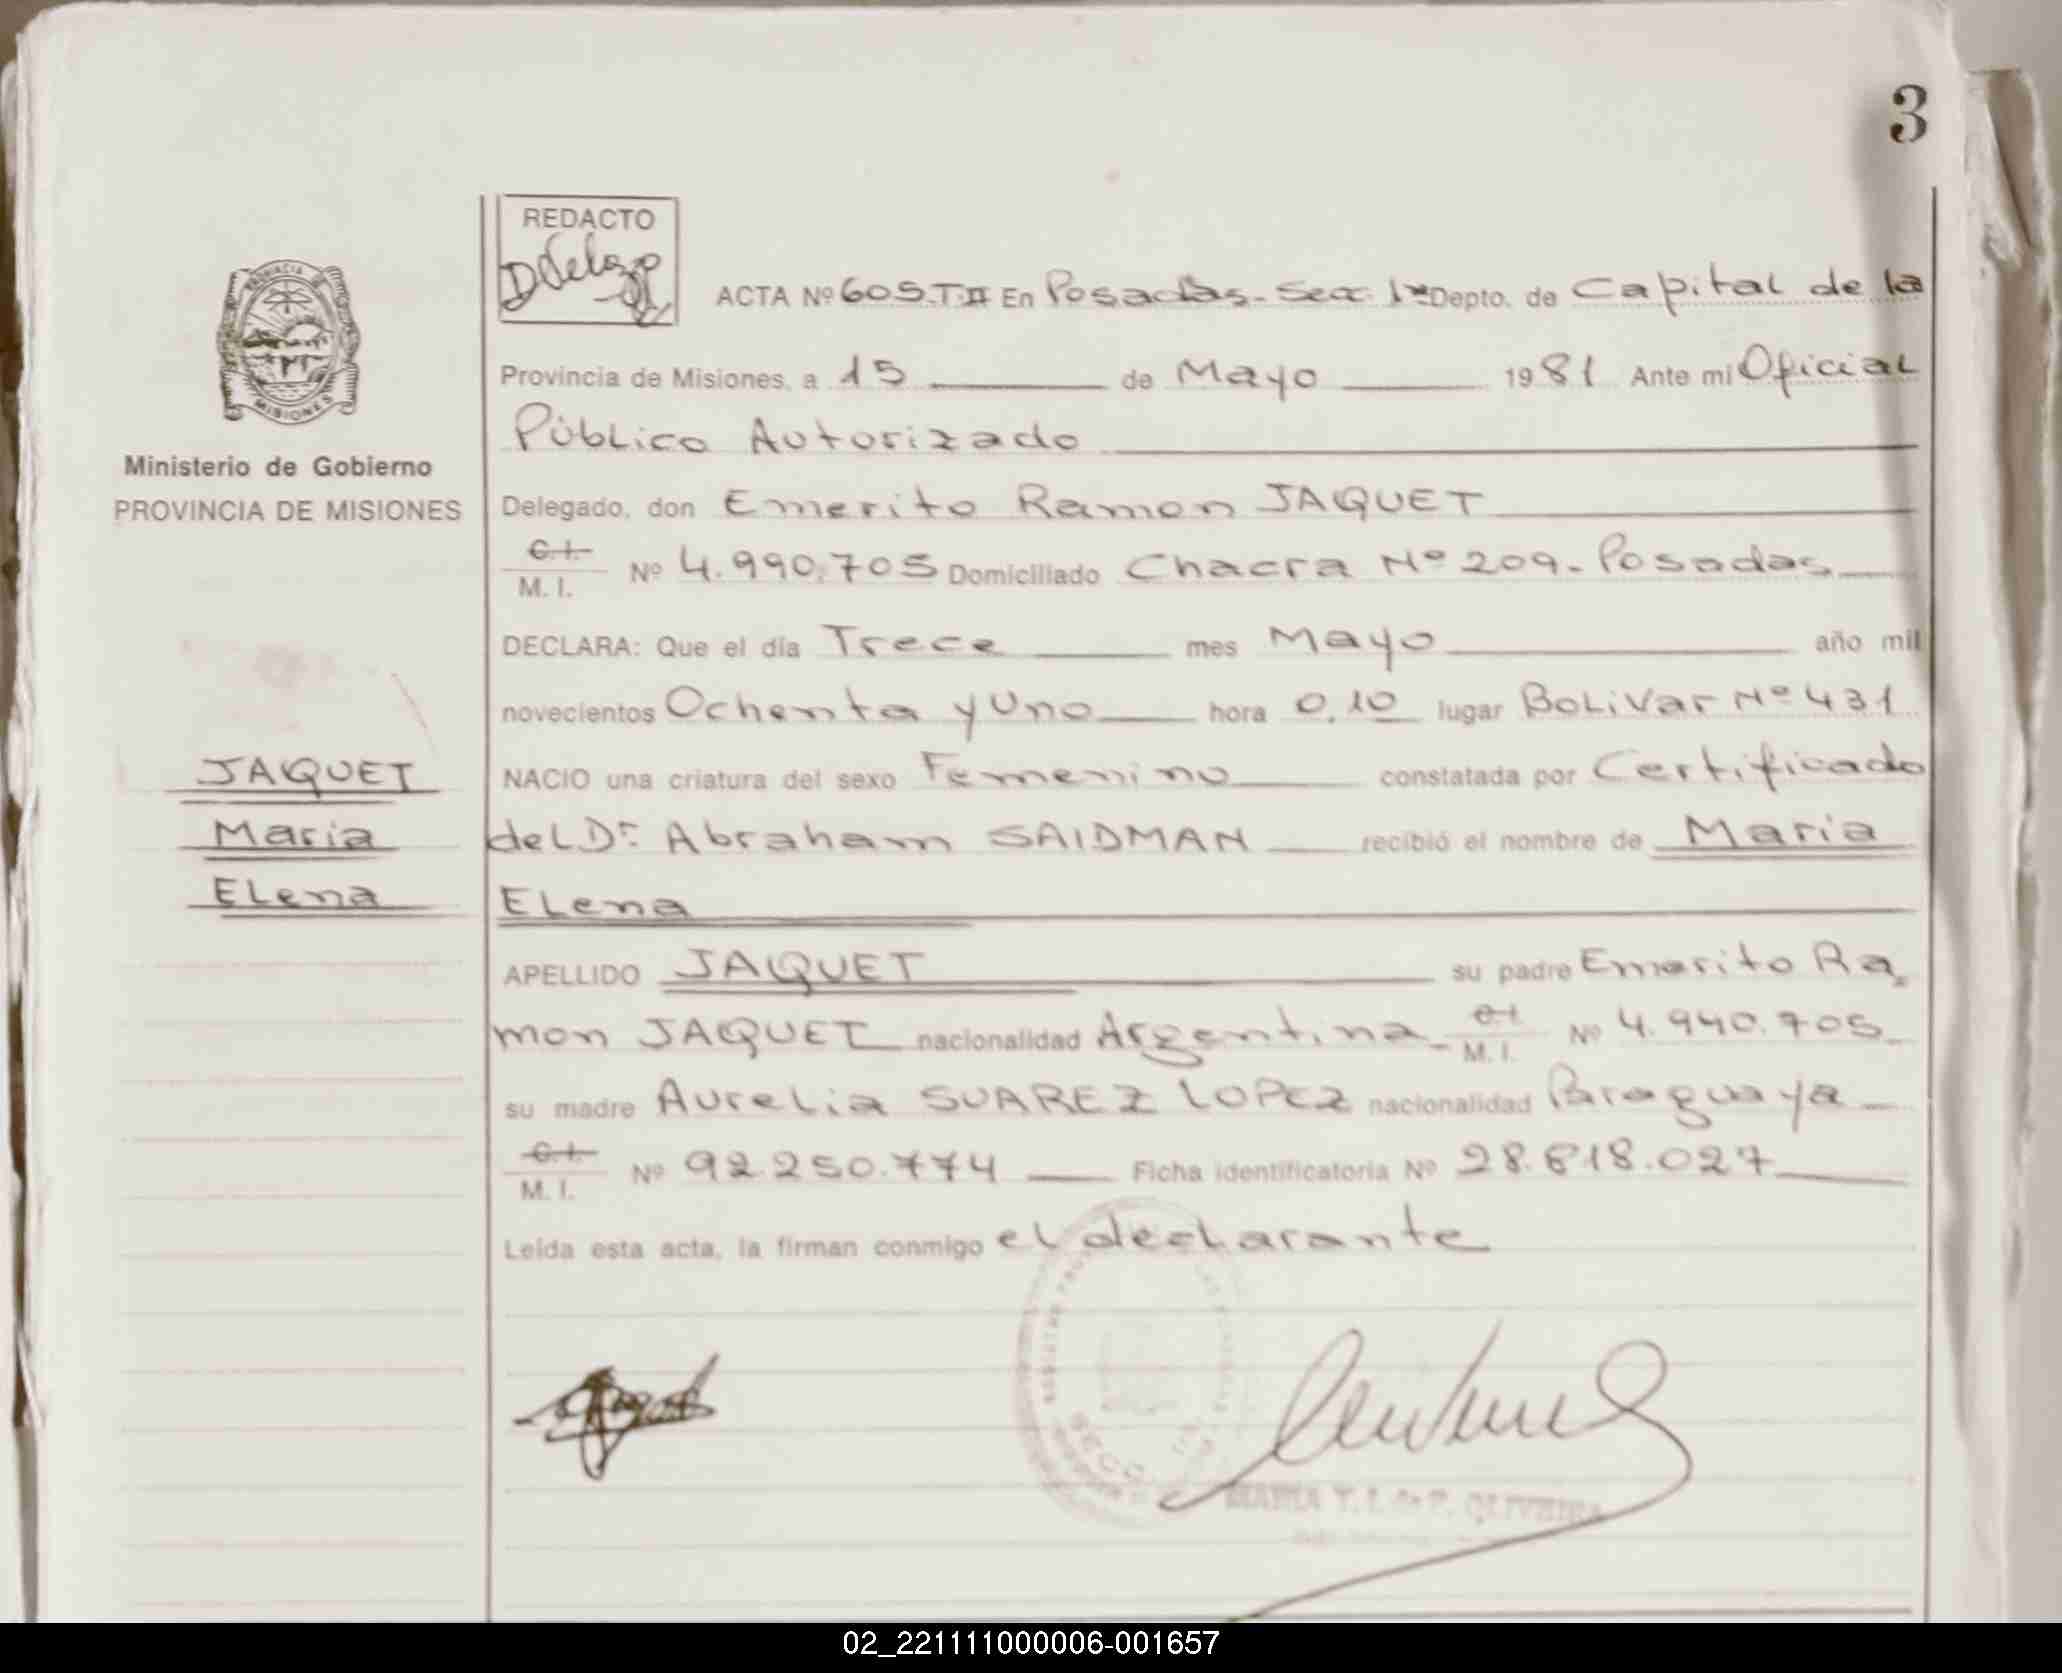 3
REDACTO
ACTA Nº 605.T.II En Posadas-Secc. 1ra Depto. de Capital de la
PROVINCIA DE
MISIONES
Provincia de Misiones, a 15 de Mayo 1981 Ante mi Oficial
Público Autorizado
Ministerio de Gobierno
PROVINCIA DE MISIONES
Delegado, don Emerito Ramon JAQUET
C.I.
M. I. Nº 4.990.705 Domiciliado Chacra Nº 209-Posadas
DECLARA: Que el día Trece mes Mayo año mil
novecientos Ochenta y Uno hora 0,10 lugar BoLiVar Nº 431
JAQUET
Maria
ELena
NACIO una criatura del sexo Femenino constatada por Certificado
deL Dr. Abraham SAIDMAN recibió el nombre de Maria
ELena
APELLIDO JAQUET su padre Emerito Ra
mon JAQUET nacionalidad Argentina C.I.
M. I. Nº 4.940.705
su madre AureLia SUAREZ LOPEZ nacionalidad Paraguaya
C.I.
M. I. Nº 92.250.774 Ficha identificatoria Nº 28.818.027
Leída esta acta, la firman conmigo eL decLarante
SECC.
MARIA T. I. de P. OLIVEIRA
02_221111000006-001657